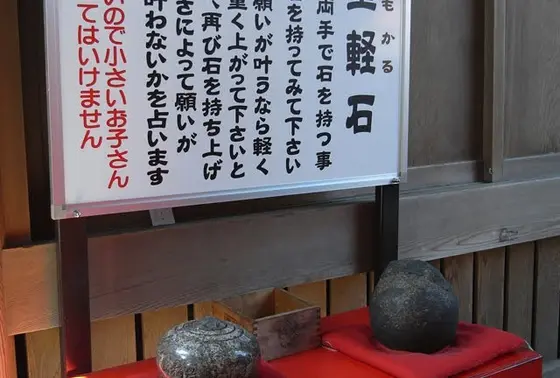 もかる
軽石
両手で石を持つ事
を持ってみて下さい
願いが叶うなら軽く
重く上がって下さいと
再び石を持ち上げ
さによって願いが
叶わないかを占います
いので小さいお子さん
てはいけません